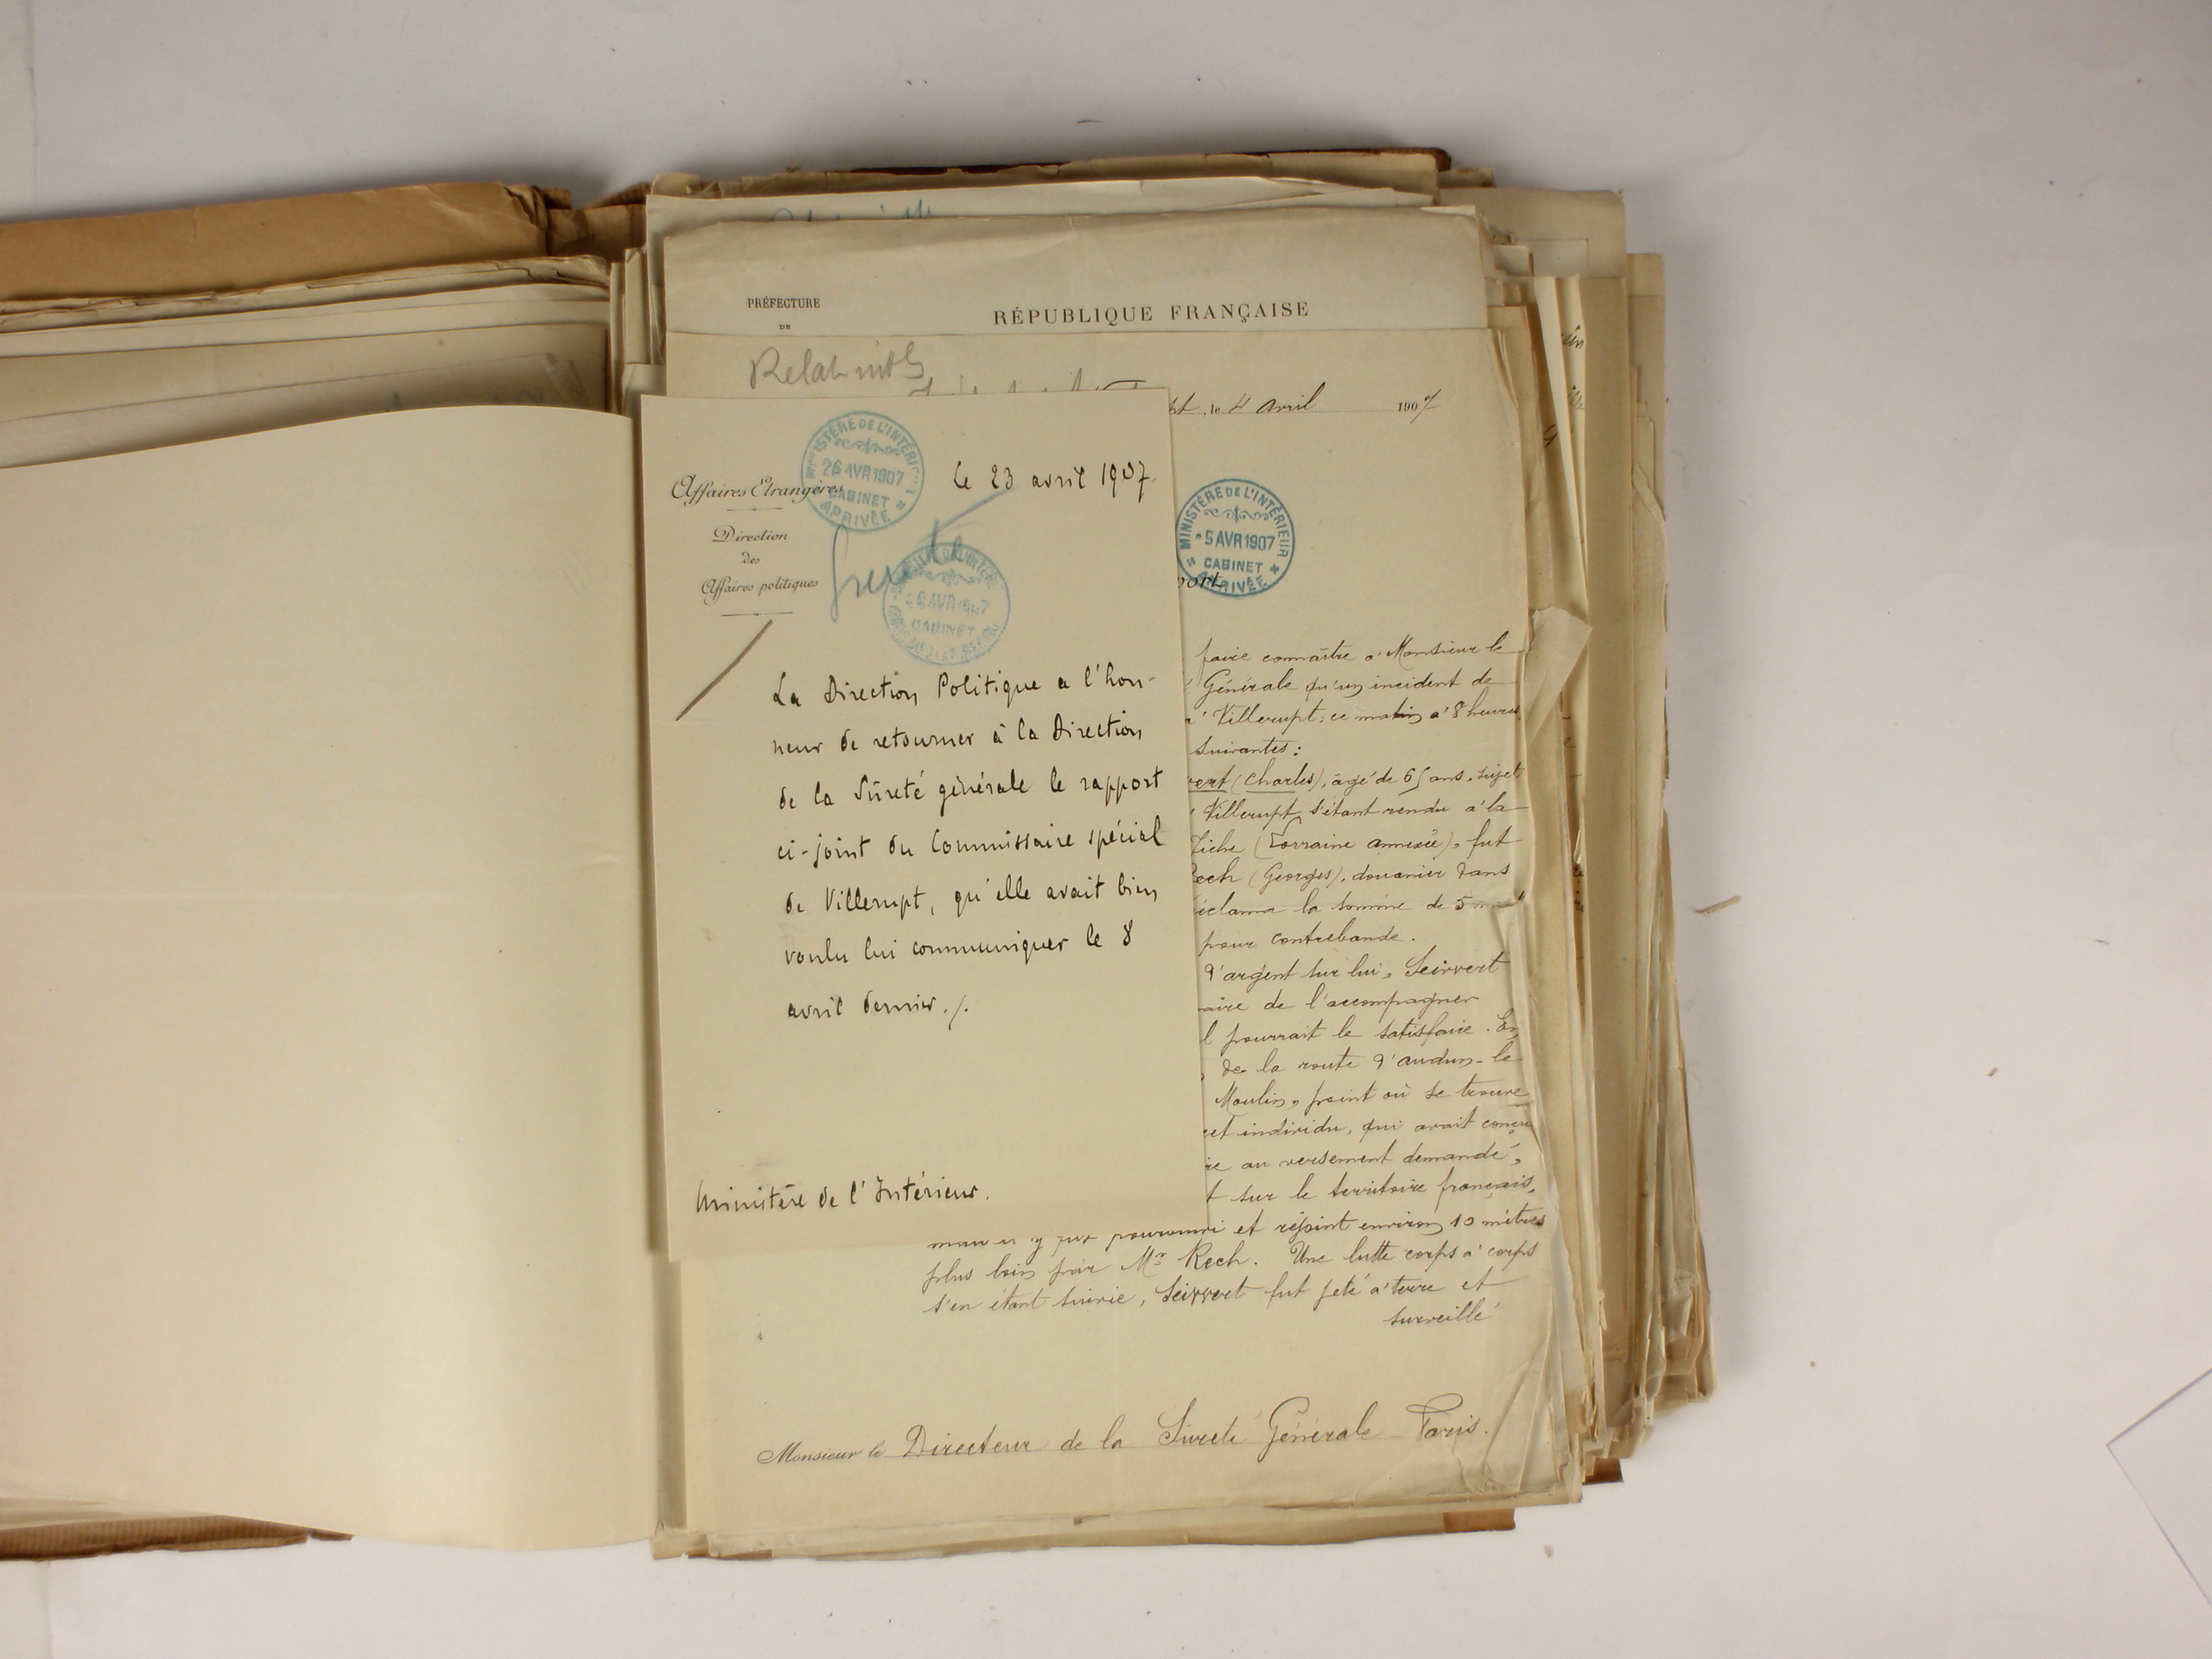 PRÉFECTURE
DE
RÉPUBLIQUE FRANÇAISE
, le 4 avril 1907
Affaires Etrangères
Direction
des
Affaires politiques
MINISTÈRE DE L'INTÉRIEUR
26 AVR 1907
CABINET
ARRIVÉE
le 23 avril 1907.
CABINET
La Direction Politique a l'hon-
neur de retourner à la Direction
de la Sûreté générale le rapport
ci-joint du Commissaire spécial
de Villerupt, qu'elle avait bien
voulu lui communiquer le 8
avril dernier ./.
Ministère de l'Intérieur.
MINISTÈRE DE L'INTÉRIEUR
5 AVR 1907
CABINET
ARRIVÉE
port
faire connaître à Monsieur le
Générale qu'un incident de
à Villerupt, ce matin à 8 heures
suivantes :
vert (Charles), âgé de 65 ans, sujet
Villerupt, s'étant rendu à la
(Lorraine annexée), fut
Rech (Georges), douanier dans
réclama la somme de 5
pour contrebande.
d'argent sur lui, Seirvert
de l'accompagner
l pourrait le satisfaire. En
de la route d'Audun-le
Moulin, point où se trouve
cet individu, qui avait conçu
re au versement demandé,
t sur le territoire français,
mais il y fut poursuivi et rejoint environ 10 mètres
plus loin par Mr Rech. Une lutte corps à corps
s'en étant suivie, Seirvert fut jeté à terre et
surveillé
Monsieur le Directeur de la Sûreté Générale Paris.